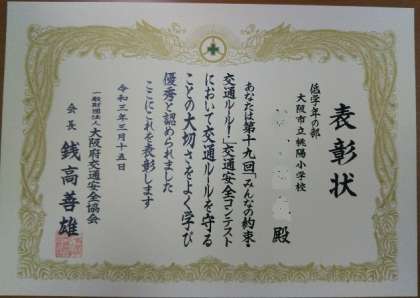 表彰状
低学年の部
大阪市立桃陽小学校
殿
あなたは第十九回「みんなの約束・
交通ルール！」交通安全コンテスト
において交通ルールを守る
ことの大切さをよく学び
優秀と認められました
ここにこれを表彰します
令和三年三月十五日
一般財団法人 大阪府交通安全協会
会長 銭高善雄